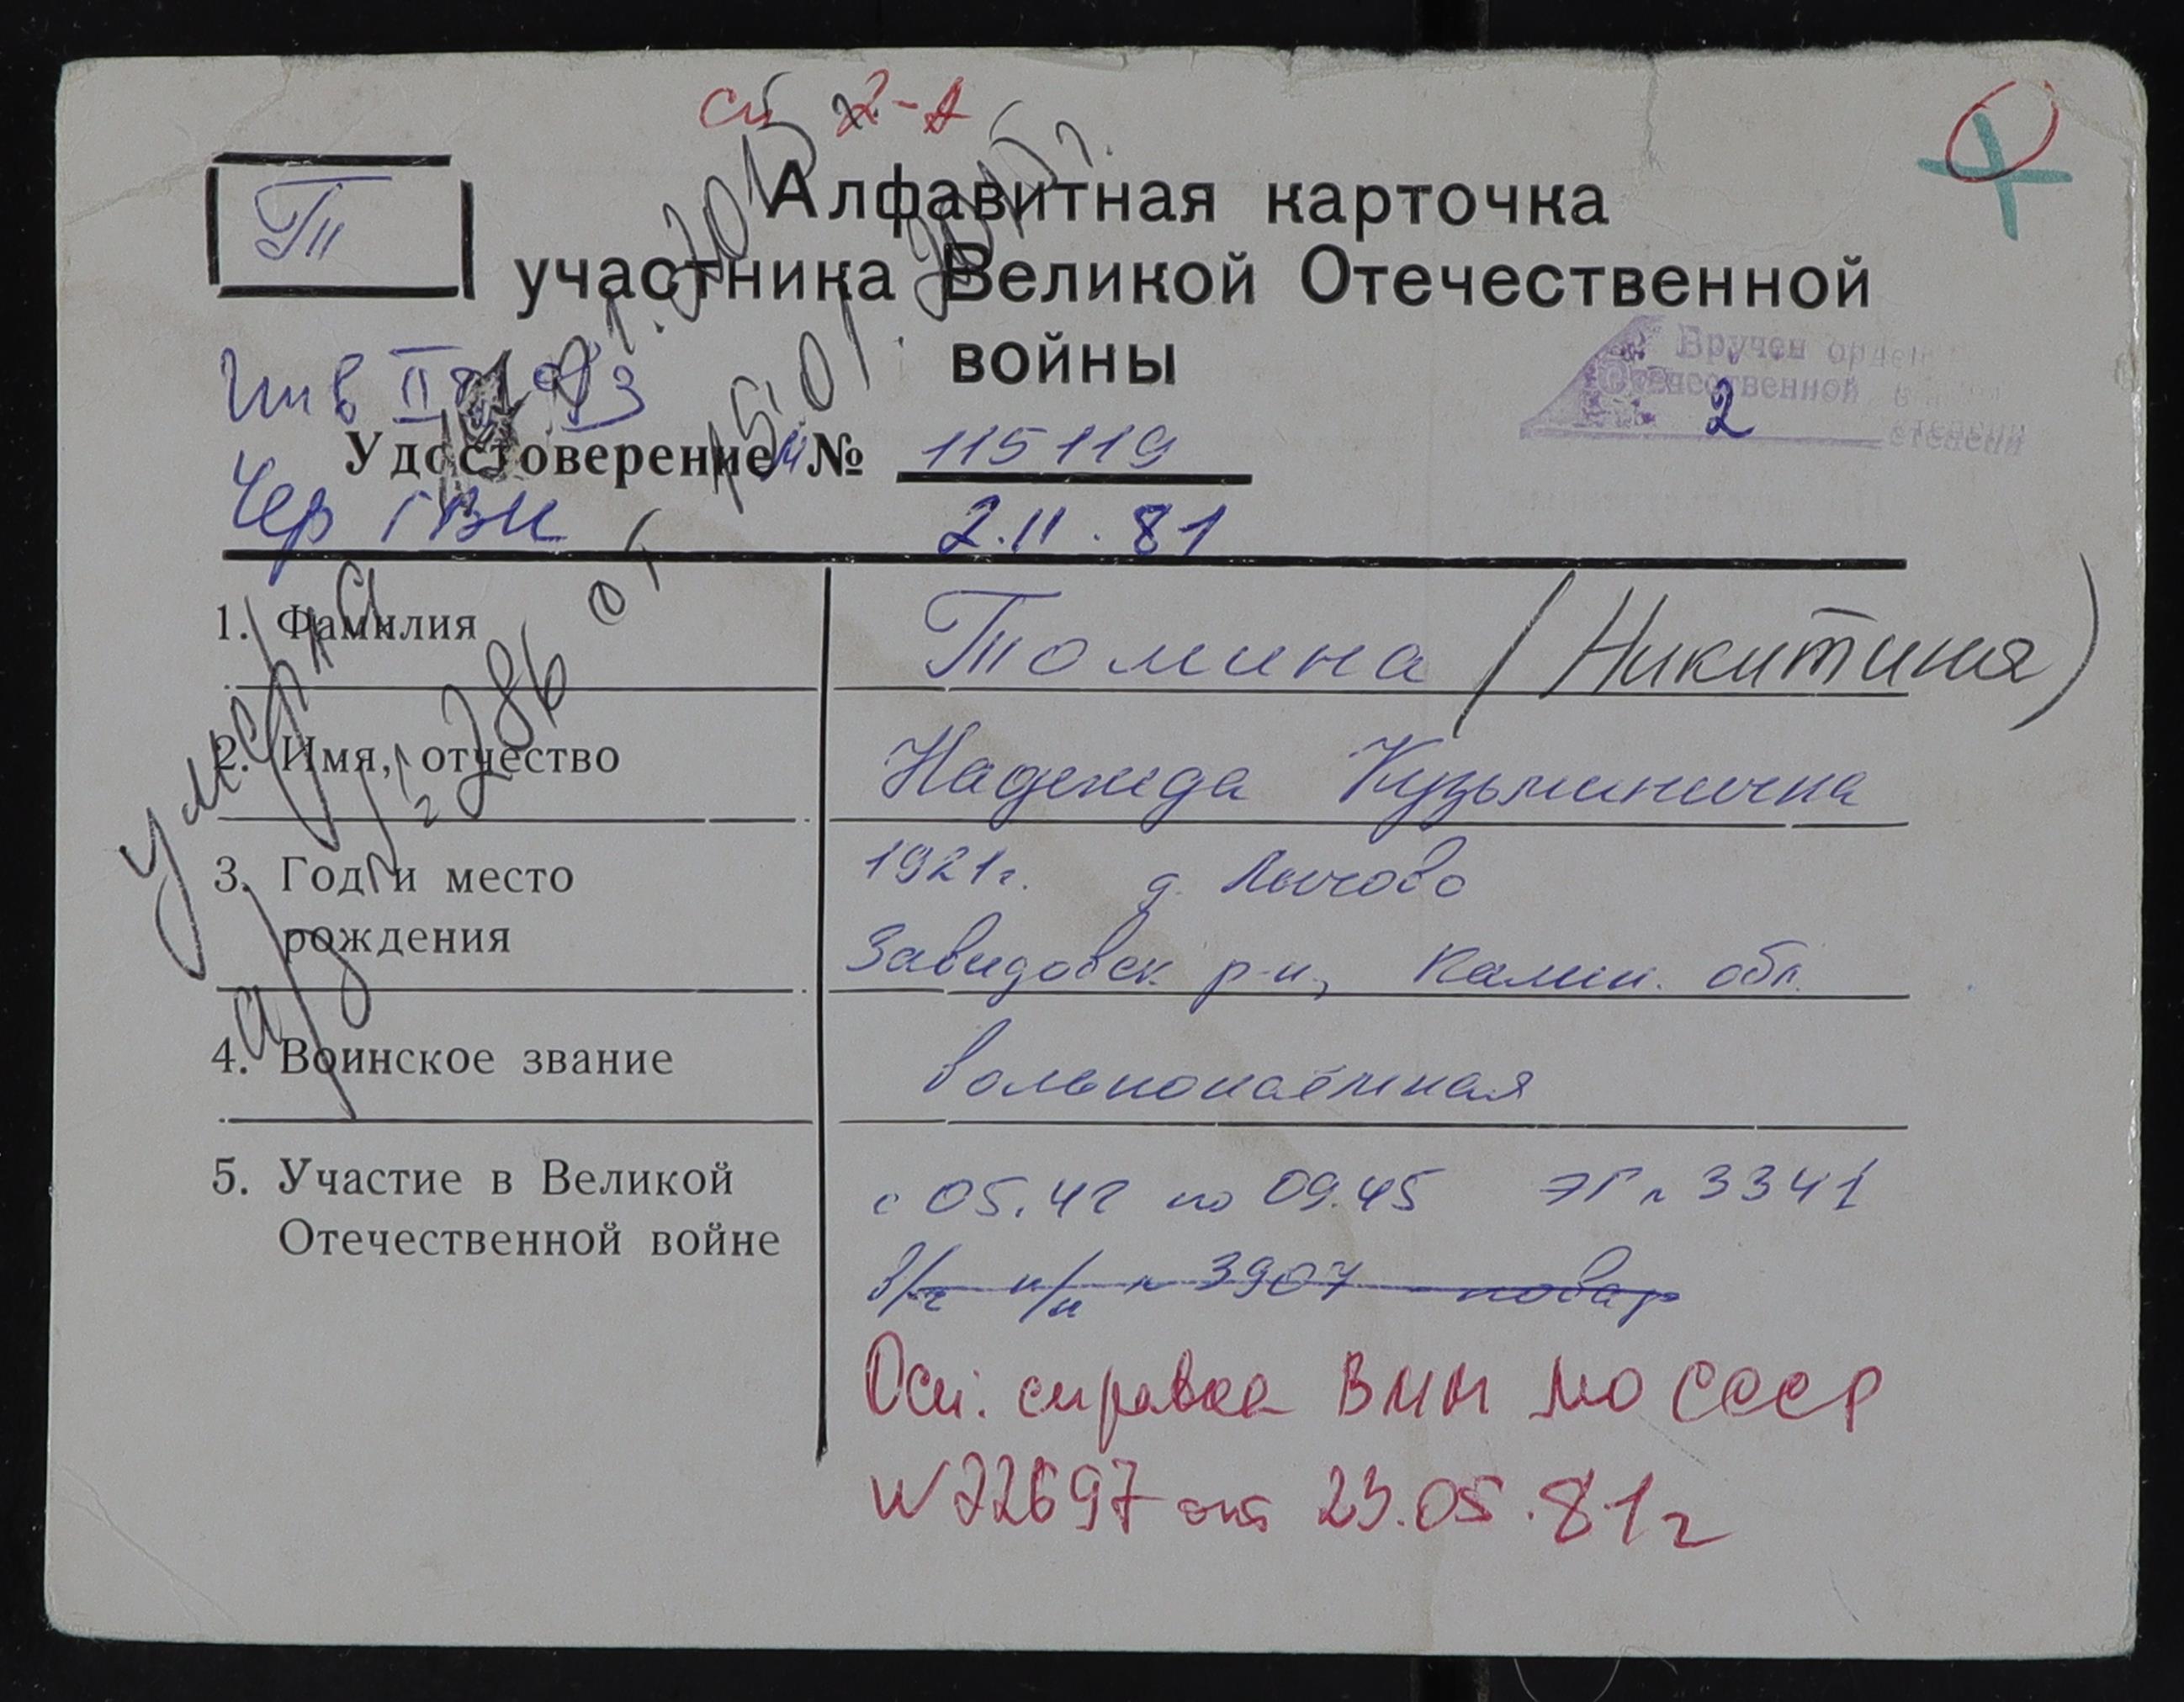 2-А
Т
Алфавитная карточка
участника Великой Отечественной
войны
Вручен орден
Отечественной
2 степени
Инв II
Удостоверение № 115119
Чер ГВК 2.11.81
1. Фамилия Томина (Никитина)
2. Имя, отчество Надежда Кузьминична
3. Год и место 1921г. д. Лычово
рождения Завидовск. р-н, Калин. обл.
4. Воинское звание вольнонаёмная
5. Участие в Великой с 05.42 по 09.45 ЭГ № 3341
Отечественной войне в/ч п/п № 3907 повар
Осн. справка ВММ МО СССР
N 22697 от 23.05.81г
умерла
а/з № 286 от 15.01.2015г.